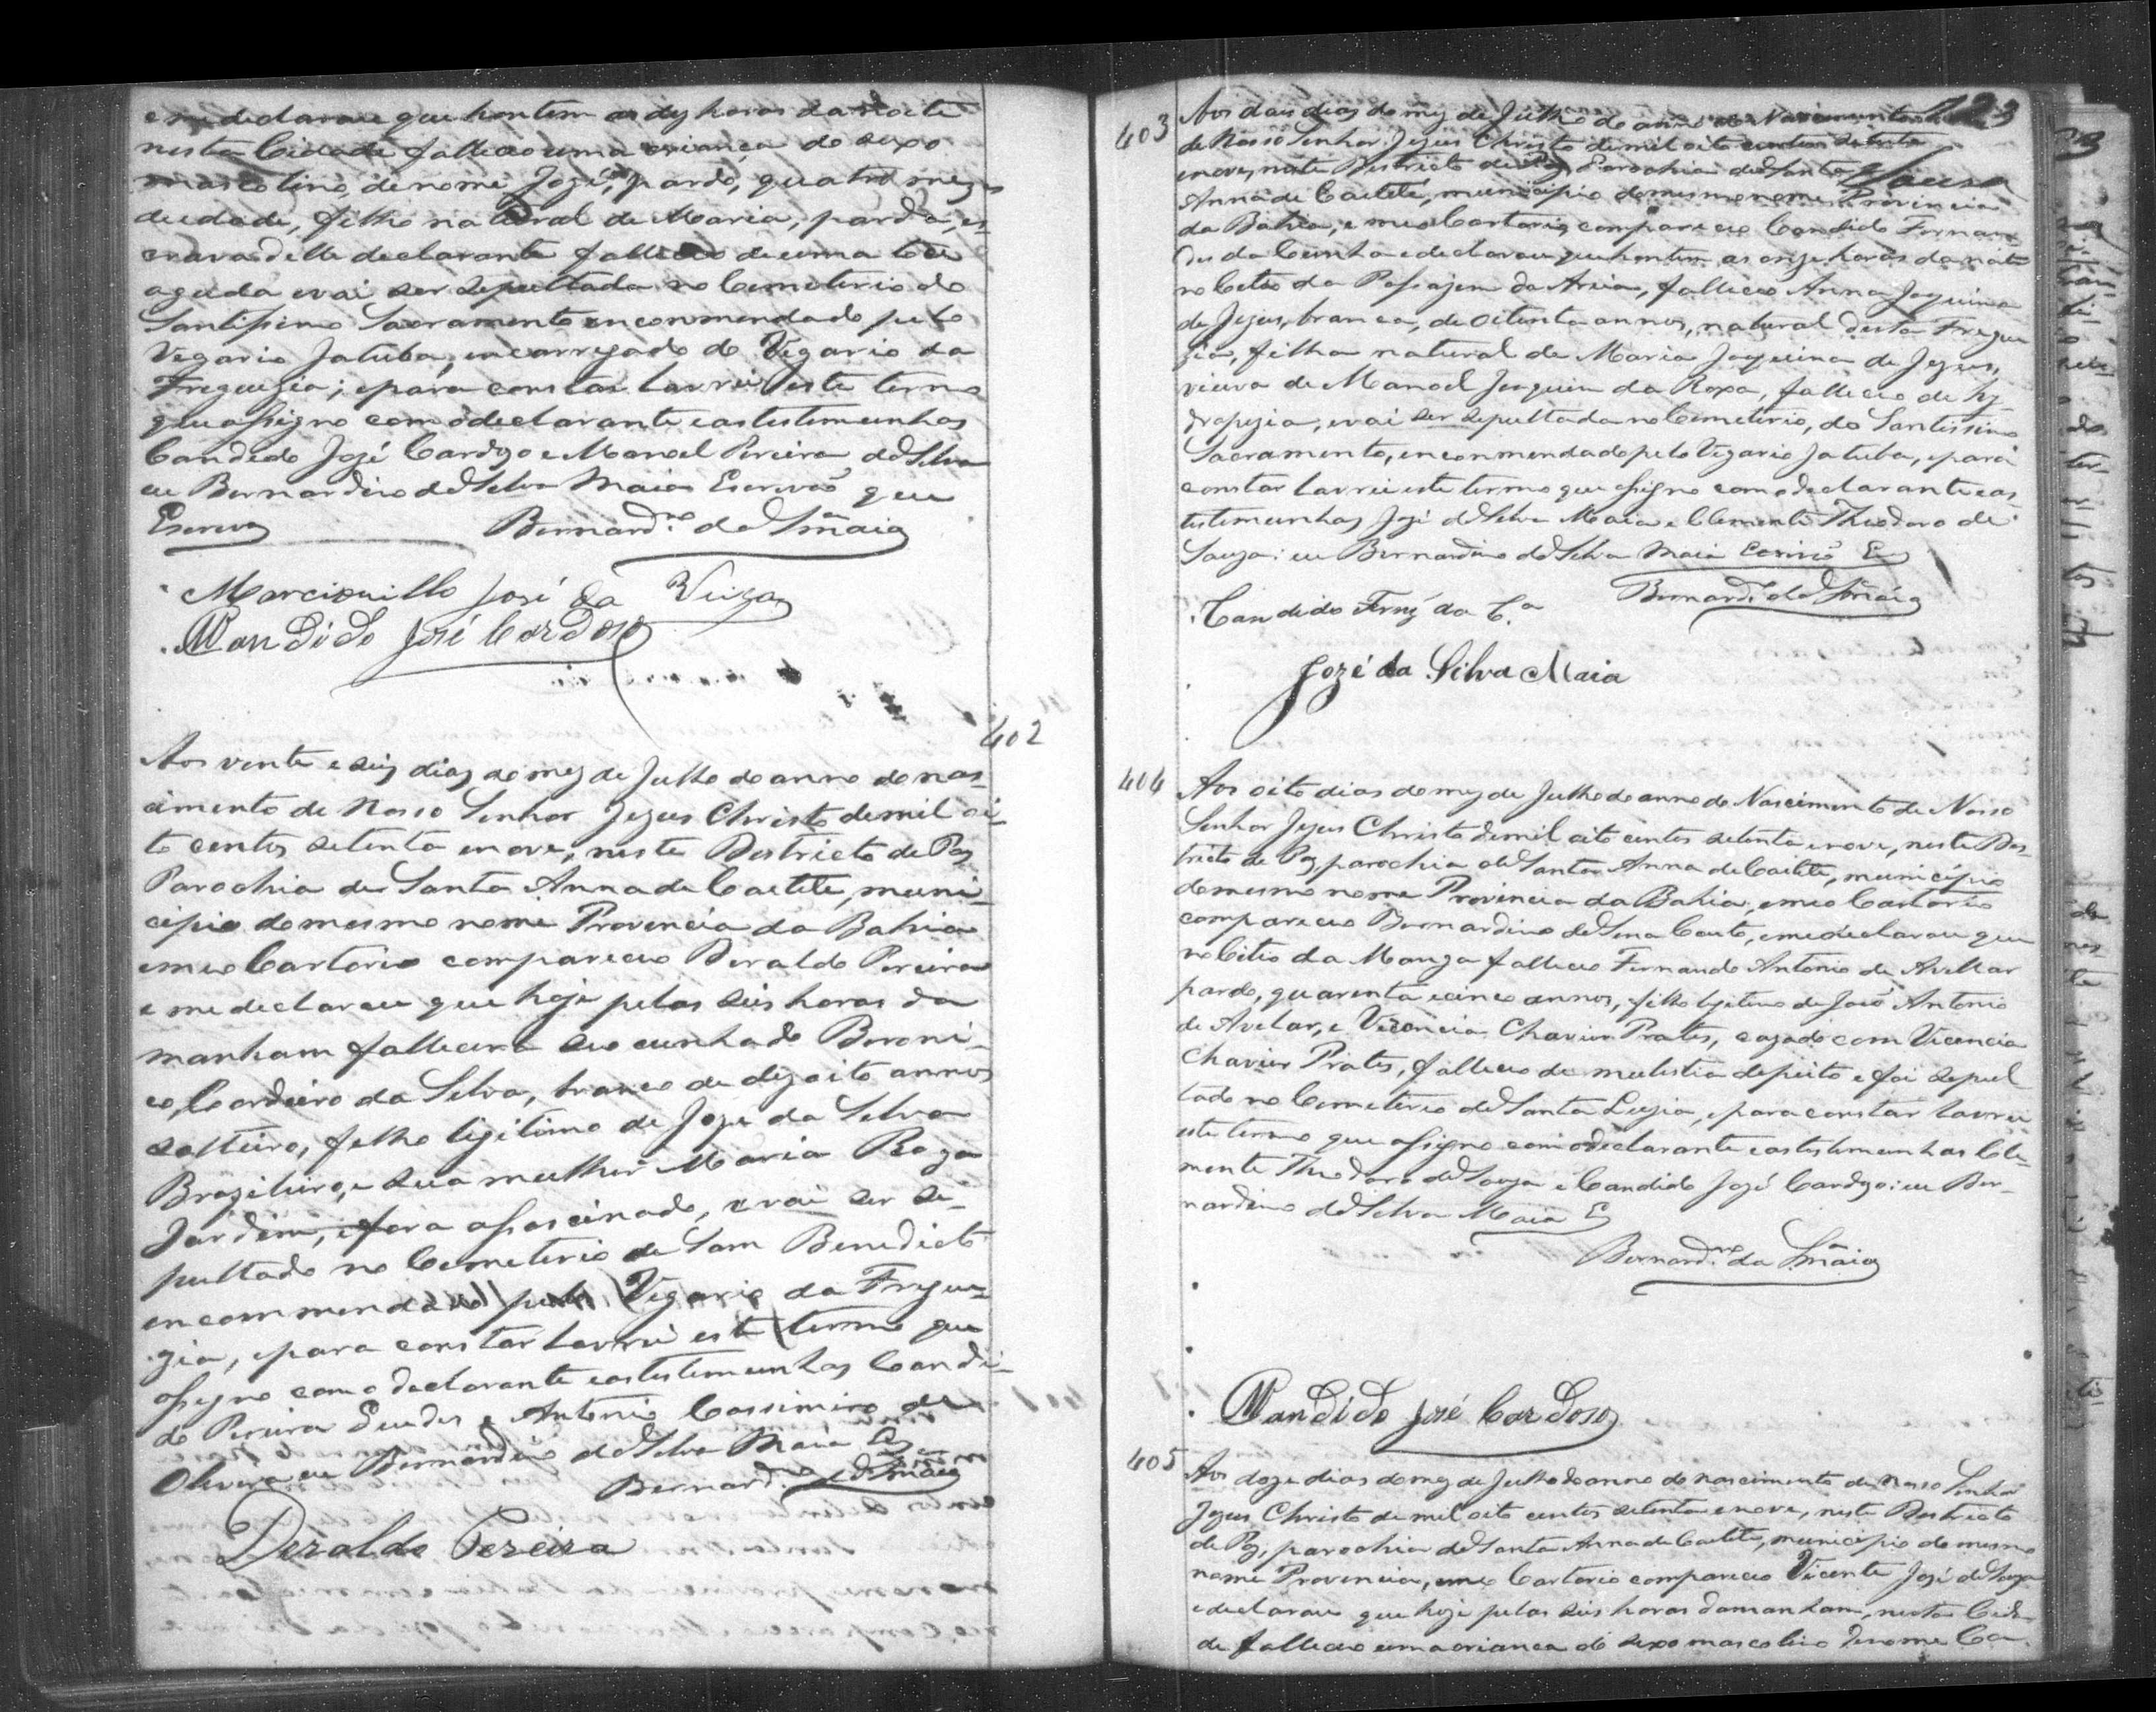 e me declarou que hontem as dez horas da noite
nesta Cidade falleceo uma criança do sexo
mascolino, de nome José, pardo, quatro mezes
de edade, filho natural de Maria, parda, es-
crava delle declarante falleceo de uma toce
aguda e vai ser sepultada no Cemeterio do
Santissimo Sacramento enconmendado pelo
Vegario Jatubá, encarregado do Vegario da
Freguezia; e para constar lavrei este termo
que assigno com o declarante e as testimunhas
Candido José Cardozo e Manoel Pereira da Silva
eu Bernardino da Silva Maia Escrevão que
Escrevy Bernard.no da S.a Maia
Marcionillo José da Veiga
Candido José Cardoso
402
Aos vente e seis dias do mez de Julho do anno do nas-
cimento de Nosso Senhor Jezus Christo de mil oi-
to centos setenta e nove, neste Destricto de Paz
Parochia de Santa Anna de Caetete, muni-
cipio do mesmo nome Provencia da Bahia
e meo Cartorio compareceo Deraldo Pereira
e me declarou que hoje pelas seis horas da
manham fallecera seo cunhado
Cordeiro da Silva, branco de dezoito annos
solteiro, filho legitimo de Joze da Silva
Brazileiro, e sua mulher Maria Roza
Jardim, e fora assascinado, e vai ser se-
pultado no Cemeterio de Sam Benedicto
encommendado pelo Vegario da Fregue-
zia, e para constar lavrei este termo que
assigno com o declarante e as testemunhas Candi-
do Pereira Guedes e Antonio Cassimiro de
Olivera eu Bernardino da Silva Maia E
Bernard.no da S.a Maia
Deraldo Pereira
123
403 Aos dous dias do mez de Julho do anno do Nascimento
de Nosso Senhor Jezus Christo de mil oito centos setenta
e nove, neste Destricto de Paz Parochia de Santa Souza
Anna de Caeteté, municipio do mesmo nome Provincia
da Bahia, e meo Cartorio compareceo Candido Fernan-
des da Cunha e declarou que hontem as onze horas da noite
no Citio da Passajem da Areia, falleceo Anna Joaquina
de Jezus, branca, de oitenta annos, natural desta Fregue
zia, filha natural de Maria Joaquina de Jezus,
vieuva de Manoel Joaquim da Roxa, falleceo de hy-
dropezia, e vai ser sepultada no Cemeterio, do Santissimo
Sacramento, enconmendado pelo Vegario Jatuba, e para
constar lavrei este termo que assigno com o declarante e as
testemunhas José da Silva Maia e Clemente Theodoro de
Souza: eu Bernardino da Silva Maia Escrivão E
Bernard.no da S.a Maia
Candido Fernz da C.a
Jozé da Silva Maia
404 Aos oito dias do mez de Julho do anno do Nascimento de Nosso
Senhor Jezus Christo de mil oito centos setenta e nove, neste Des-
tricto de Paz, parochia de Santa Anna de Caetete, municipio
do mesmo nome Provincia da Bahia, e meo Cartorio
compareceo Bernardino de Sena Couto, e me declarou que
no Citio da Manga falleceo Fernando Antonio de Avellar
pardo, quarenta e cinco annos, filho legitimo de João Antonio
de Avelar, e Vicencia Chavier Prates, cazado com Vicencia
Chavier Prates, falleceo de mulestia de peito e foi sepul
tado no Cemeterio de Santa Luzia, e para constar lavrei
este termo que assigno com o declarante e as testemunhas Cle-
mente Theodoro de Souza e Candido José Cardozo: eu Ber-
nardino da Silva Maia E
Bernard.no da S.a Maia
Candido José Cardoso
405 Aos doze dias do mez de Julho do anno do nascimento de Nosso Senhor
Jezus Christo de mil oito centos setenta e nove, neste Destricto
de Paz, parochia de Santa Anna de Caetete, municipio do mesmo
nome Provencia, e meo Cartorio compareceo Vicente José de Souza
e declarou que hoje pelas seis horas da manham, nesta Cida-
de falleceo uma crianca do sexo mascolino de nome Ca-